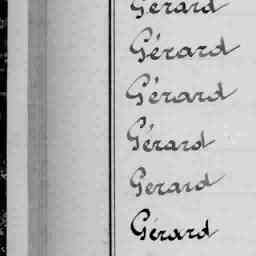 Gérard
Gérard
Gérard
Gérard
Gerard
Gérard